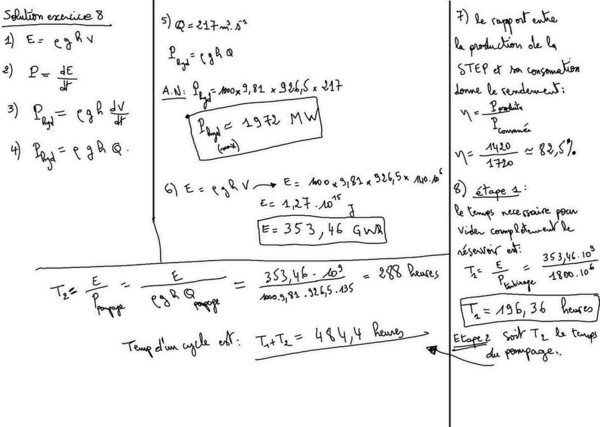 Solution exercice 8
1) E = ρghV
2) P = dE/dt
3) P_hyd = ρgh dV/dt
4) P_hyd = ρghQ.
5) Q = 217 m³.s⁻¹
P_hyd = ρghQ
A.N: P_hyd = 1000 × 9,81 × 926,5 × 217
P_hyd (max) ≈ 1972 MW
6) E = ρghV → E = 1000 × 9,81 × 926,5 × 140.10⁶
E = 1,27 . 10¹⁵ J
E = 353,46 GWh
7) le rapport entre
la production de la
STEP et sa consomation
donne le rendement:
η = P_produite / P_consommée
η = 1420/1720 ≃ 82,5%
8) étape 1:
le temps necessaire pour
vider complètement le
réservoir est:
T₁ = E/P_turbinage = 353,46.10⁹/1800.10⁶
T₁ = 196,36 heures
Etape 2 Soit T₂ le temps
du pompage..
T₂ = E/P_pompage = E/ρghQ_pompage = 353,46 . 10⁹/1000.9,81.926,5.135 = 288 heures
Temp d'un cycle est: T₁+T₂ = 484,4 heures